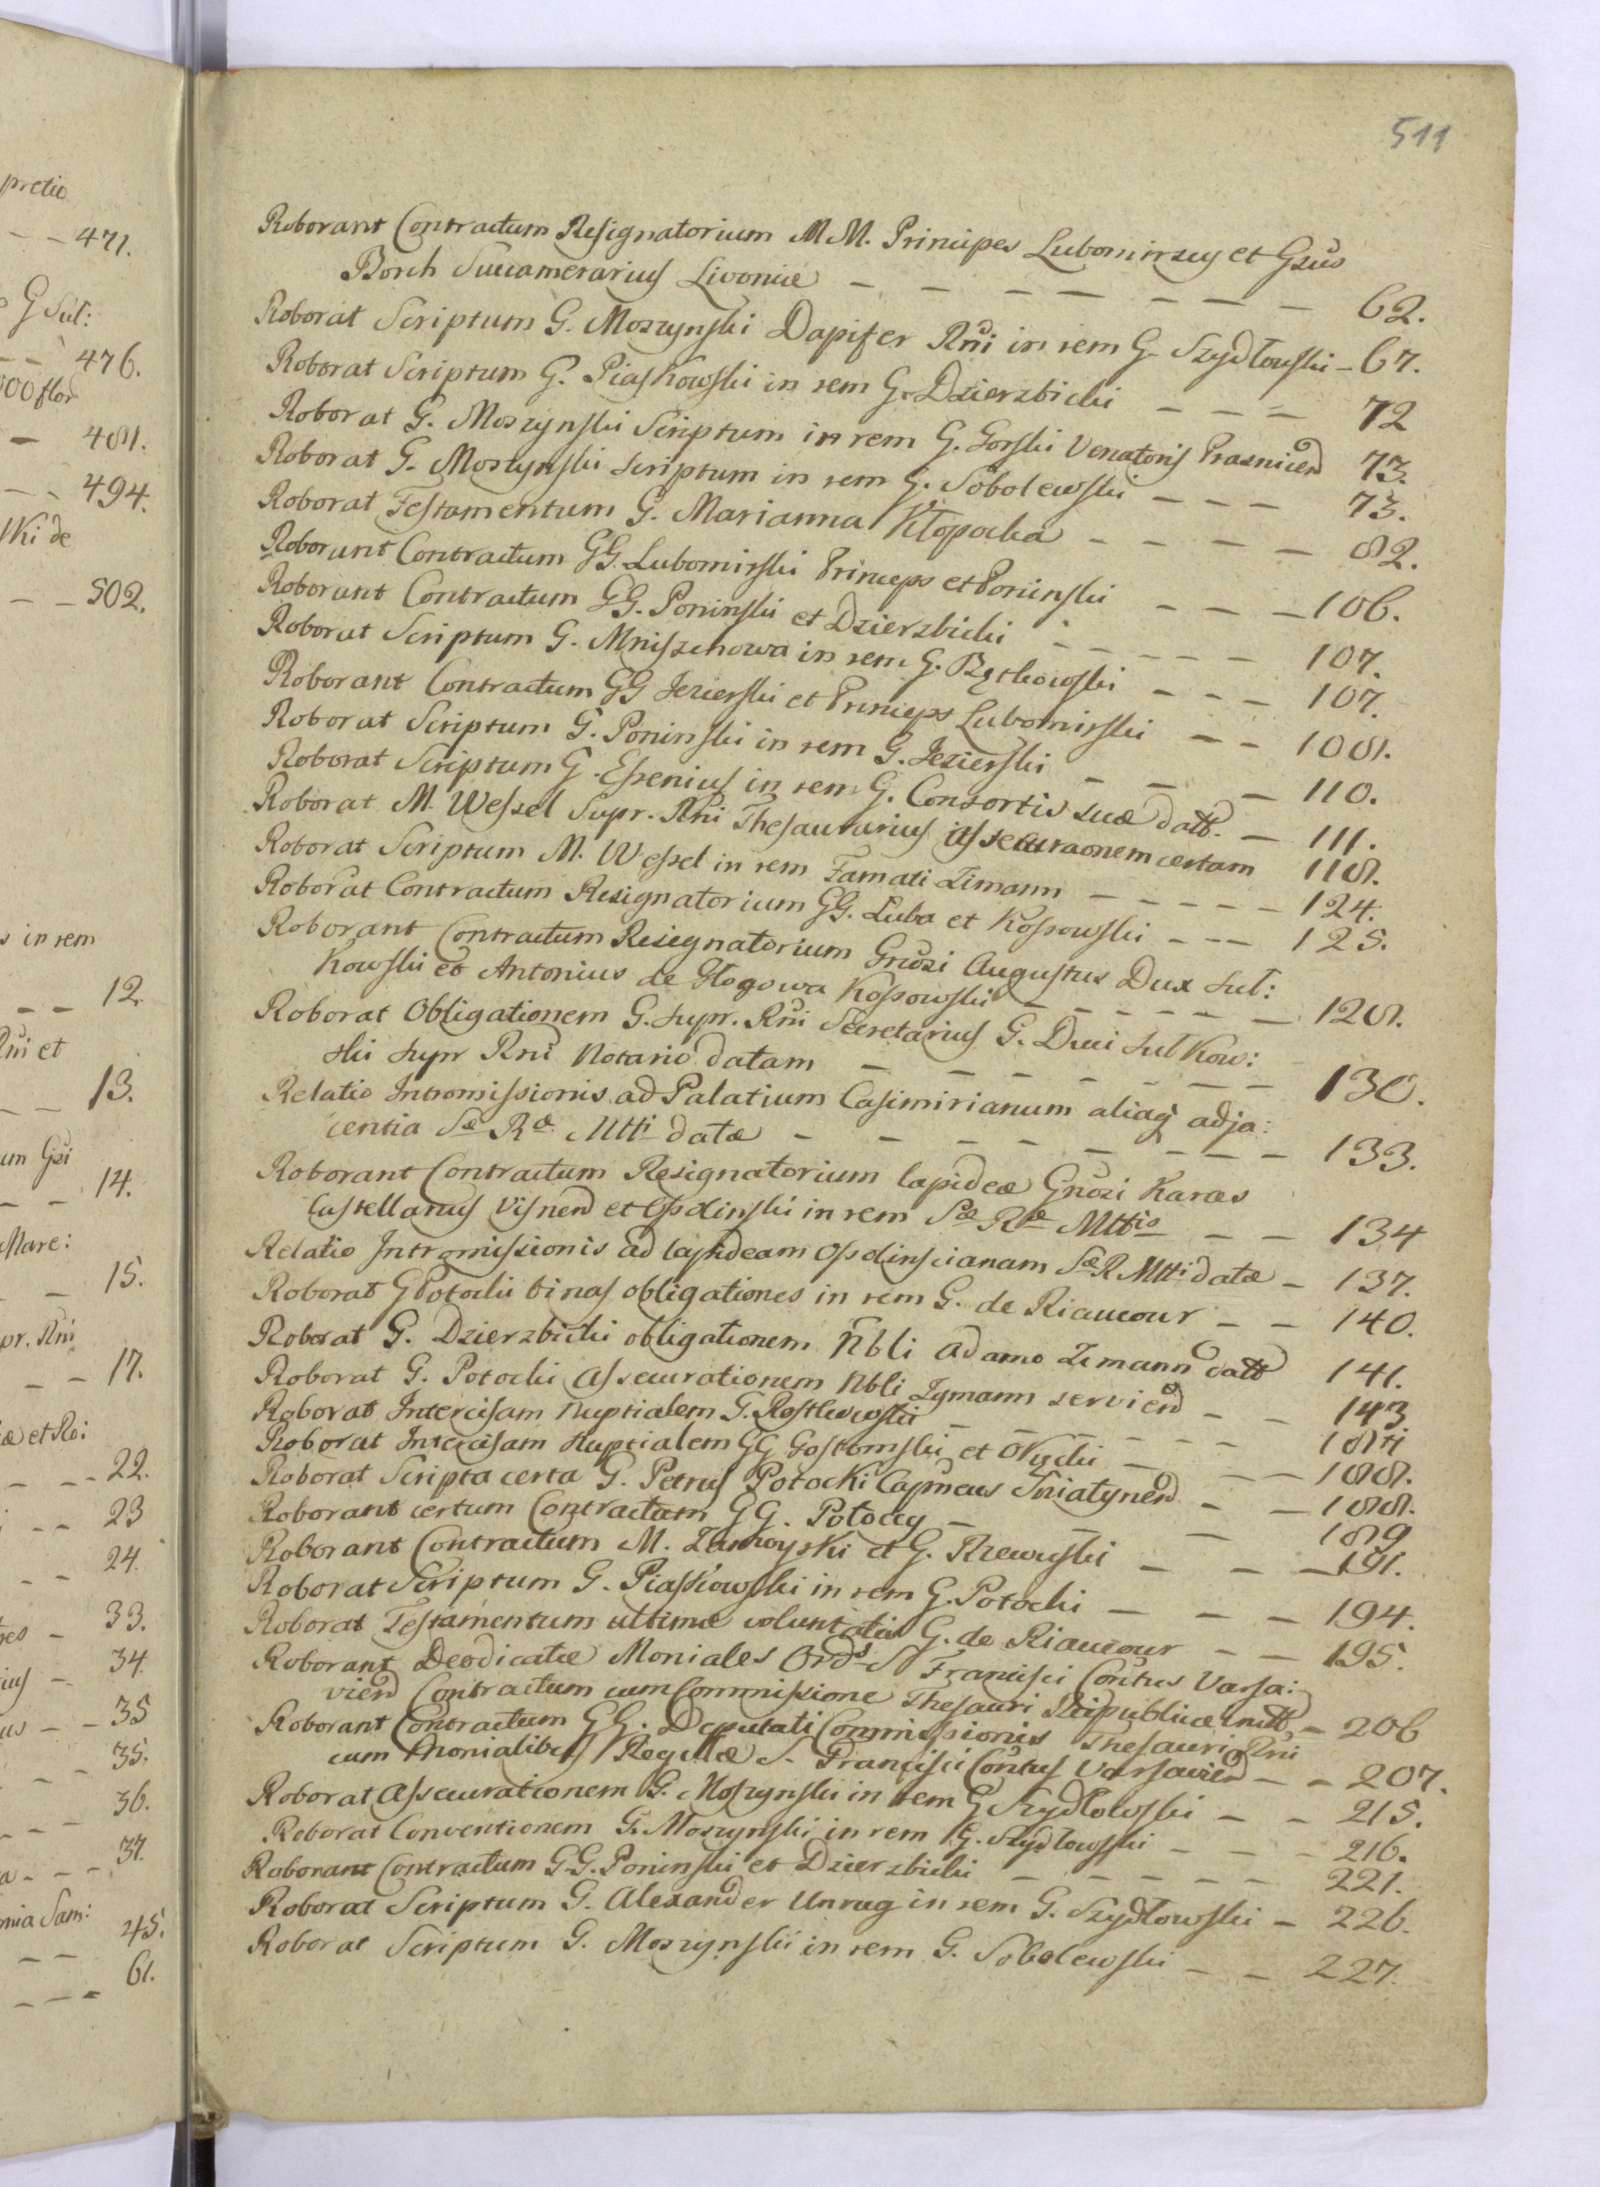 511
Roborant Contractum Resignatorium MM. Principes Lubomirscy et Gsus
Borch Succamerarius Livoniæ – – – – – – – 62.
Roborat Scriptum G. Moszynski Dapifer Rni in rem G. Szydłowski – 67.
Roborat Scriptum G. Piaskowski in rem G. Dzierzbicki – – – 72
Roborat G. Moszynski Scriptum in rem G. Gorski Venatoris Prasnicen 73.
Roborat G. Moszynski Scriptum in rem G. Sobolewski – – – 73.
Roborat Testamentum G. Marianna Kłopocka – – – – 82.
Roborant Contractum GG. Lubomirski Princeps et Poninski – – – 106.
Roborant Contractum GG. Poninski et Dzierzbicki – – – – – 107.
Roborat Scriptum G. Mniszchowa in rem G. Rętkowski – – – 107.
Roborant Contractum GG Jezierski et Princeps Lubomirski – – 108.
Roborat Scriptum G. Poninski in rem G. Jezierski – – – 110.
Roborat Scriptum G. Essenius in rem G. Consortis suæ datt. – 111.
Roborat M. Wessel Supr. Rni Thesaurarius assecuraonem certam 118.
Roborat Scriptum M. Wessel in rem Famati Zimann – – – – – 124.
Roborat Contractum Resignatorium GG. Luba et Kossowski – – – 125.
Roborant Contractum Resignatorium Gnosi Augustus Dux Sul:
kowski et Antonius de Głogowa Kossowski – – – – – – 128.
Roborat Obligationem G. Supr. Rni Secretarius G. Duci Sulkow:
ski Supr Rni Notario datam – – – – – – – 130.
Relatio Intromissionis ad Palatium Casimirianum aliaq adja:
centia Sæ Ræ Mtti datæ – – – – – – – 133.
Roborant Contractum Resignatorium lapideæ Gnosi Karas
Castellanus Visnen et Ossolinski in rem Sæ Ræ Mttis – – 134
Relatio Intromissionis ad lapideam Ossolinscianam Sæ R Mtti datæ – 137.
Roborat G Potocki binas obligationes in rem G. de Riaucour – – 140.
Roborat G. Dzierzbicki obligationem Nbli Adamo Zimann datt 141.
Roborat G. Potocki assecurationem Nbli Zymann servien – – 143
Roborat Intercisam Nuptialem G. Rostkowski – – – – – 187
Roborat Intercisam Nuptialem GG Gostomski et Nycki – – – 188.
Roborat Scripta certa G. Petrus Potocki Capneus Sniatynen – – 188.
Roborant certum Contractum GG. Potoccy – – – 189
Roborant Contractum M. Zamoyski et G. Rzewuski – – – 191.
Roborat Scriptum G. Piaskowski in rem G. Potocki – – – 194.
Roborat Testamentum ultimæ voluntatis G. de Riaucour – – 195.
Roborant Deodicatæ Moniales Ords S Francisci Contus Varsa:
vien Contractum cum Commissione Thesauri Reipublicæ init – 206
Roborant Contractum GG. Deputati Commissionis Thesauri Rni
cum Monialibus Regulæ S. Francisci Contus Varsavien – – 207.
Roborat Assecurationem G. Moszynski in rem G Szydłowski – – 215.
Roborat Conventionem G. Moszynski in rem G. Szydłowski – – – 216.
Roborant Contractum G.G. Poninski et Dzierzbicki – – – – – 221.
Roborat Scriptum G. Alexander Unrug in rem G. Szydłowski – 226.
Roborat Scriptum G. Moszynski in rem G. Sobolewski – – 227.
pretio
– – 471.
G Sul:
– – 476.
000 flor
– 481.
– – 494.
ski de
– – 502.
in rem
– – 12.
Rni et
– – 13.
um Gsi
– – 14.
Mare:
– – 15.
pr. Rni
– – 17.
æ et Ro:
– – – 22.
– – 23
– – 24.
– 33.
– 34.
– – 35
– – – 35.
– – – 36.
– – – 37.
mia Sam:
– – 45.
– – – 61.